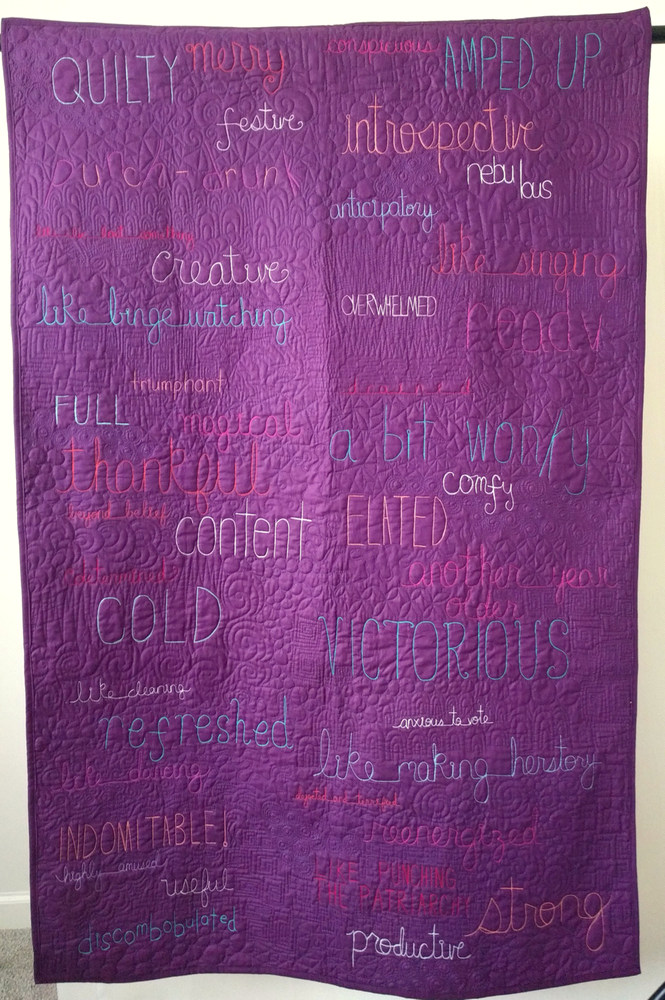 QUILTY
merry
festive
punch-drunk
creative
like binge watching
triumphant
FULL
magical
thankful
beyond belief
content
determined
COLD
like cleaning
refreshed
like dancing
INDOMITABLE!
highly amused
useful
discombobulated
conspicuous
AMPED UP
introspective
nebulous
anticipatory
like singing
OVERWHELMED
ready
a bit wonky
comfy
ELATED
another year
older
VICTORIOUS
anxious to vote
like making herstory
dejected and terrified
reenergized
LIKE PUNCHING
THE PATRIARCHY
strong
productive